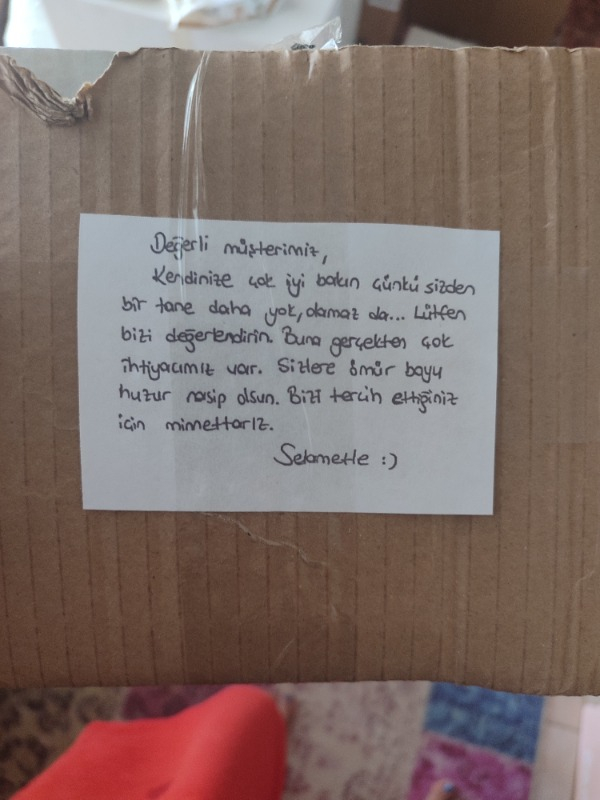 Değerli müşterimiz,
Kendinize çok iyi bakın çünkü sizden
bir tane daha yok, olamaz da... Lütfen
bizi değerlendirin. Buna gerçekten çok
ihtiyacımız var. Sizlere ömür boyu
huzur nasip olsun. Bizi tercih ettiğiniz
için minnettarız.
Selametle :)